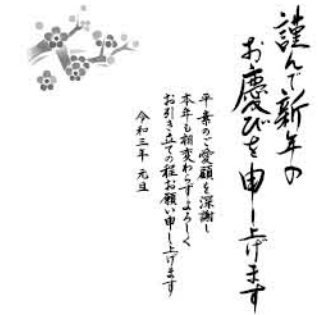 謹んで新年の
お慶びを申し上げます
平素のご愛顧を深謝し
本年も相変わらずよろしく
お引き立ての程お願い申し上げます
令和三年 元旦